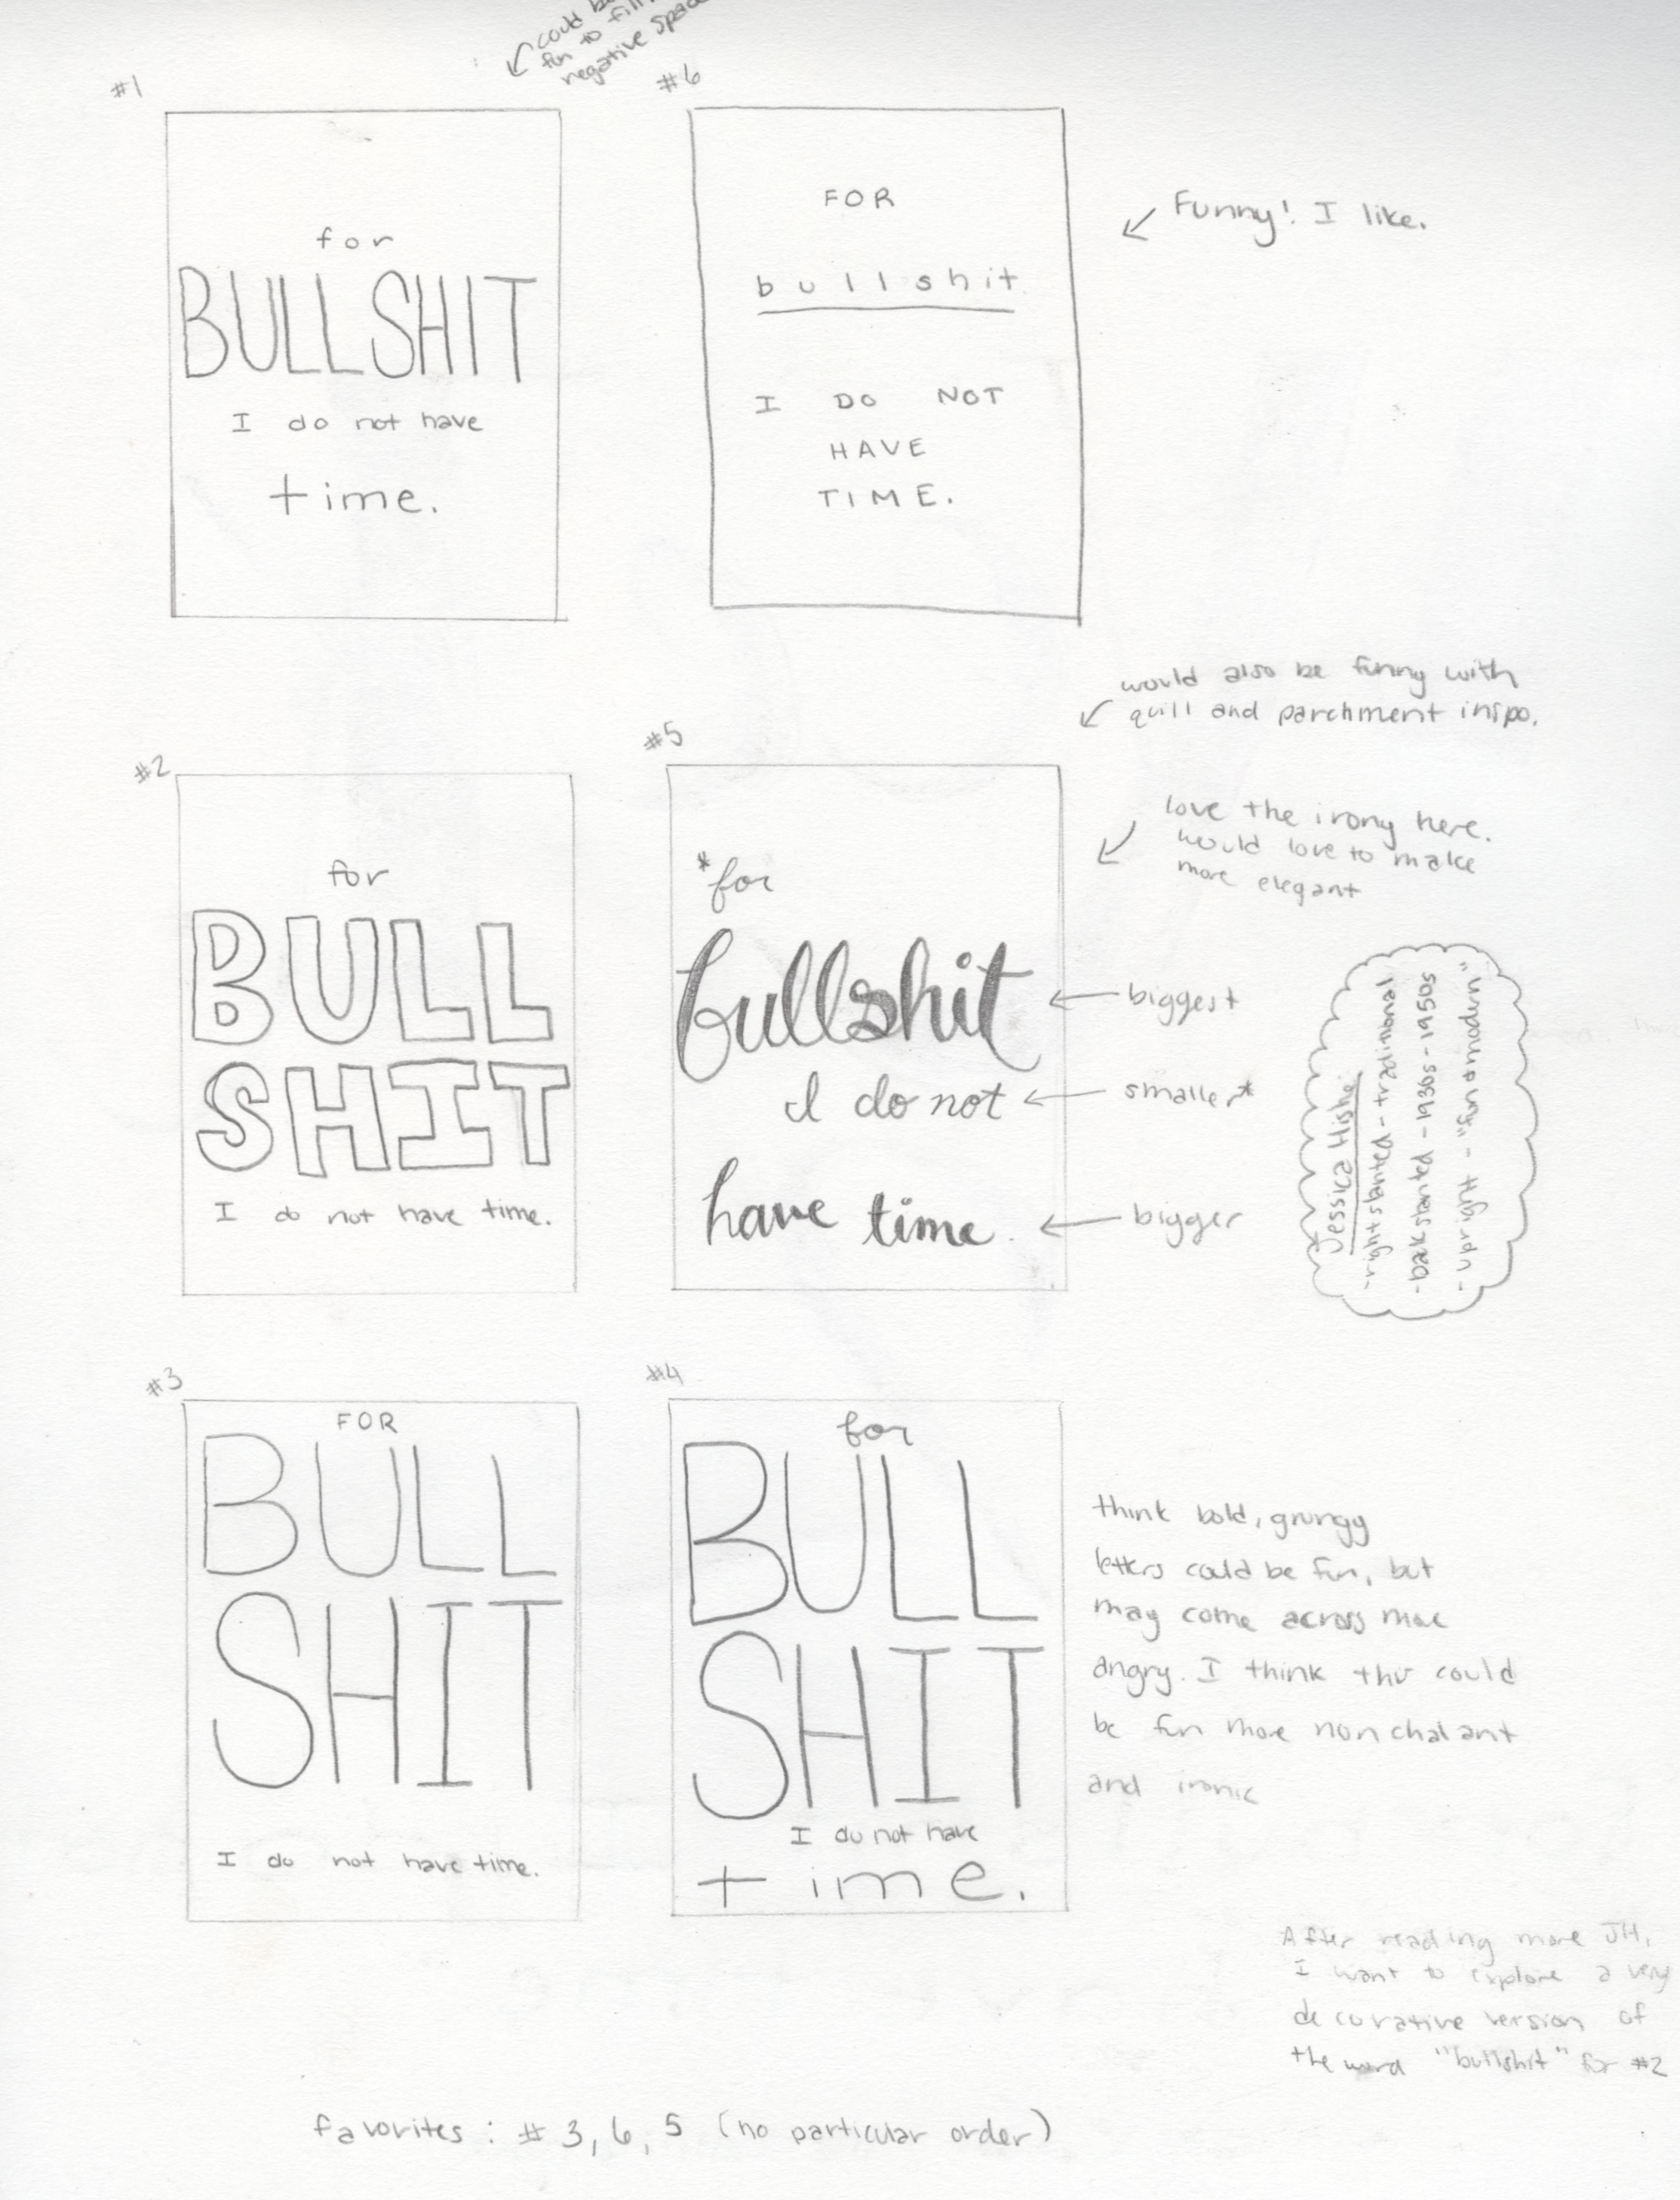 could be
fun to fill
negative space
#1
for
BULLSHIT
I do not have
time.
#6
FOR
bullshit
I DO NOT
HAVE
TIME.
Funny! I like.
would also be funny with
quill and parchment inspo.
#2
for
BULL
SHIT
I do not have time.
#5
*for
bullshit
I do not
have time.
love the irony here.
would love to make
more elegant
biggest
smallest
bigger
Jessica Hische
-right slanted - traditional
-back slanted - 1930s - 1950s
- upright - "fun + modern"
#3
FOR
BULL
SHIT
I do not have time.
#4
for
BULL
SHIT
I do not have
time.
think bold, grungy
letters could be fun, but
may come across more
angry. I think this could
be fun more nonchalant
and ironic
After reading more JH,
I want to explore a very
decorative version of
the word "bullshit" for #2
favorites: # 3, 6, 5 (no particular order)